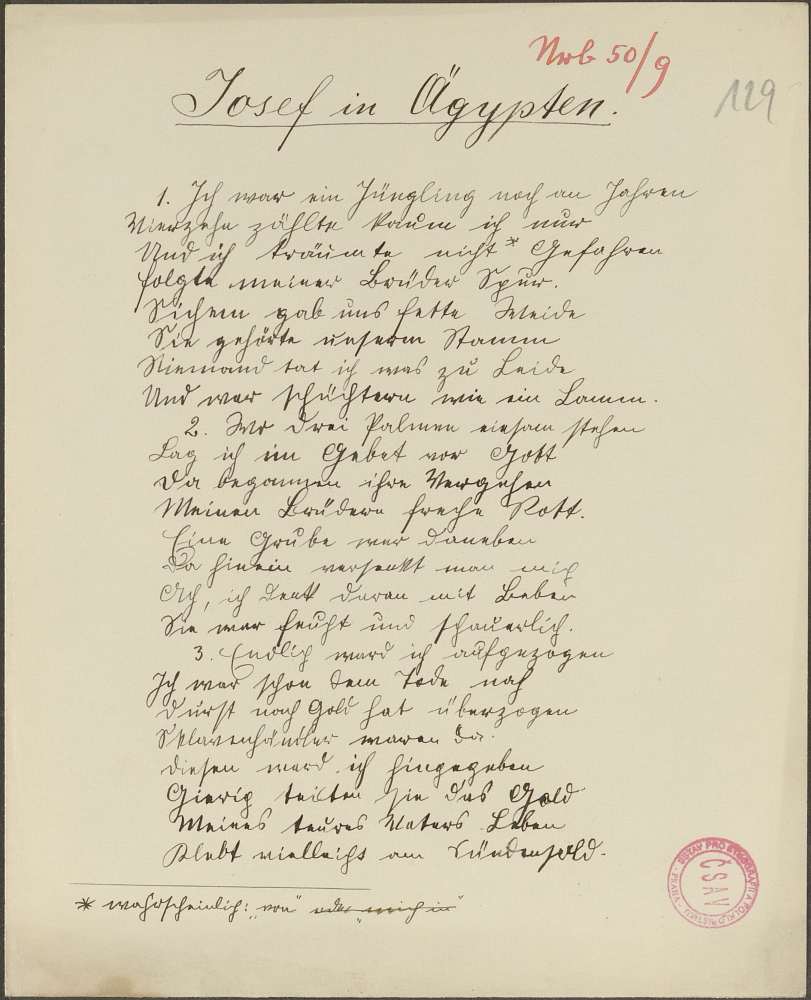 Nrb 50/9
129
Josef in Ägypten.
1. Ich war ein Jüngling noch an Jahren
Vierzehn zählte kaum ich nur
Und ich träumte nicht * Gefahren
folgte meiner Brüder Spur.
Sichem gab uns fette Weide
Sie gehörte unserm Stamm
Niemand tat ich was zu Leide
Und war schüchtern wie ein Lamm.
2. Wo drei Palmen einsam stehen
Lag ich im Gebet vor Gott
Da begannen ihre Vergehen
Meinen Brüdern freche Rott.
Eine Grube war daneben
Da hinein versenkt man mich
Ach, ich denk daran mit Beben
Sie war feucht und schauerlich.
3. Endlich ward ich aufgezogen
Ich war schon dem Tode nah
Durst nach Gold hat überzogen
Sklavenhändler waren da.
Diesen ward ich hingegeben
Gierig teilten sie das Gold
Meines teures Vaters Leben
Klebt vielleicht am Sündensold.
* wahrscheinlich: "von" oder "mich in"
ÚSTAV PRO ETNOGRAFII A FOLKLORISTIKU - PRAHA -
ČSAV